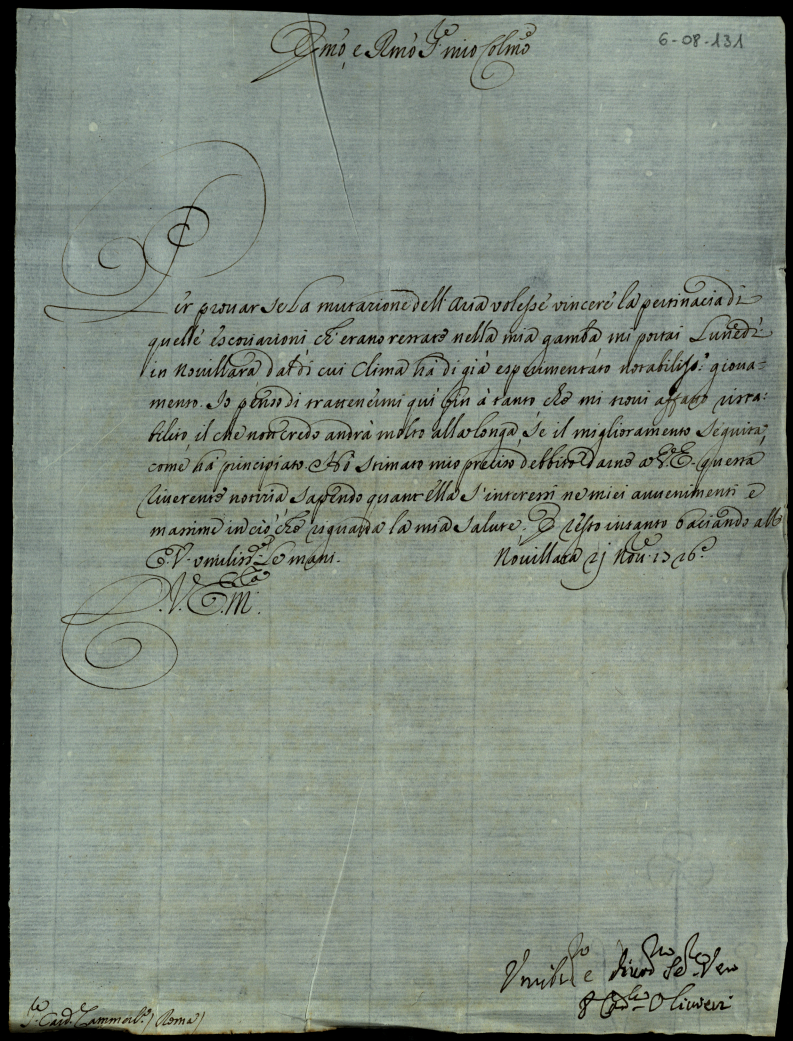 Emo, e Rmo Sre mio Colmo
6-08-131
Per prouar se la mutazione dell'Aria volesse vincere la pertinacia di
quelle escoriazioni ch'erano restate nella mia gamba mi portai Lunedì
in Nouillara dal di cui Clima hà di già esperimentato notabiliss:o gioua=
mento. Io penso di trattenermi quì fin à tanto che mi troui affatto rista:
bilito, il che non credo andrà molto alla longa, se il miglioramento seguita,
come hà principiato. Hò stimato mio preciso debbito darne a V.E. questa
riuerente notizia sapendo quant'ella s'interessi ne miei auuenimenti e
massime in ciò che risguarda la mia salute. E resto intanto baciando all'
E.V. vmiliss:te le mani.
Nouillara 21 Nou:re 1726.
D.V. Em:za
Vmilmo e diuotmo Serre Vero
Cardle Oliuieri
Sre Card.
(Roma)